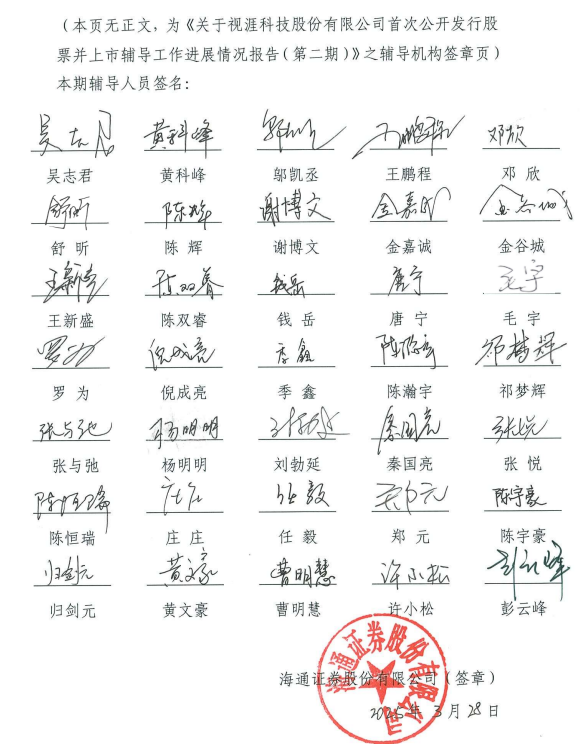 （本页无正文，为《关于视涯科技股份有限公司首次公开发行股
票并上市辅导工作进展情况报告（第二期）》之辅导机构签章页）
本期辅导人员签名：
吴志君 黄科峰 邬凯丞 王鹏程 邓欣
吴志君 黄科峰 邬凯丞 王鹏程 邓 欣
舒昕 陈辉 谢博文 金嘉诚 金谷城
舒 昕 陈 辉 谢博文 金嘉诚 金谷城
王新盛 陈双睿 钱岳 唐宁 毛宇
王新盛 陈双睿 钱 岳 唐 宁 毛 宇
罗为 倪成亮 季鑫 陈瀚宇 祁梦辉
罗 为 倪成亮 季 鑫 陈瀚宇 祁梦辉
张与弛 杨明明 刘勃延 秦国亮 张悦
张与弛 杨明明 刘勃延 秦国亮 张 悦
陈恒瑞 庄庄 任毅 郑元 陈宇豪
陈恒瑞 庄 庄 任 毅 郑 元 陈宇豪
归剑元 黄文豪 曹明慧 许小松 彭云峰
归剑元 黄文豪 曹明慧 许小松 彭云峰
海通证券股份有限公司
海通证券股份有限公司（签章）
2025年 3月 28日